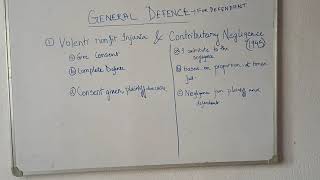 GENERAL DEFENCE → FOR DEFENDANT
① Volenti nonfit Injuria & Contributory Negligence (1945)
ⓐ Give Consent
ⓑ Complete Defence
ⓒ Consent given plaintiff
ⓐ contribute to the negligence
ⓑ based on proportion
ⓒ Negligence plaintiff and defendant